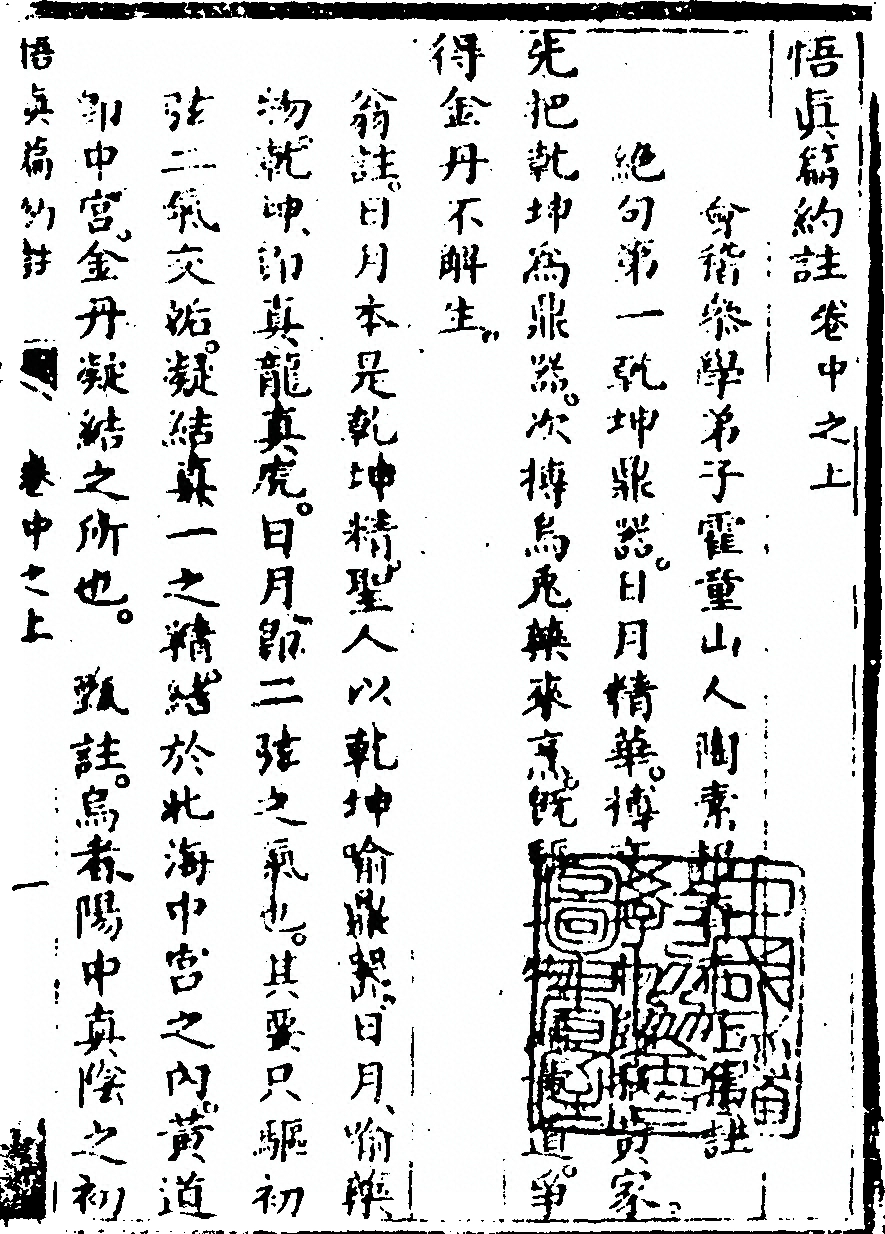 悟眞篇約註卷中之上
會稽參學弟子霍童山人陶素耜存存子集註
絶句第一乾坤鼎器。日月精華。搏之
二物歸黃家
先把乾坤爲鼎器。次搏烏兎藥來烹。旣驅二物歸黃道。爭
得金丹不解生。
翁註。日月本是乾坤精。聖人以乾坤喻鼎器。日月、喻藥
物。乾坤、卽真龍真虎。日月卽二弦之氣也。其要只驅初
弦二氣交姤。凝結真一之精。結於北海中宮之內。黃道
卽中宮。金丹凝結之所也。 甄註。烏者。陽中真陰之初
悟眞篇約註 卷中之上 一